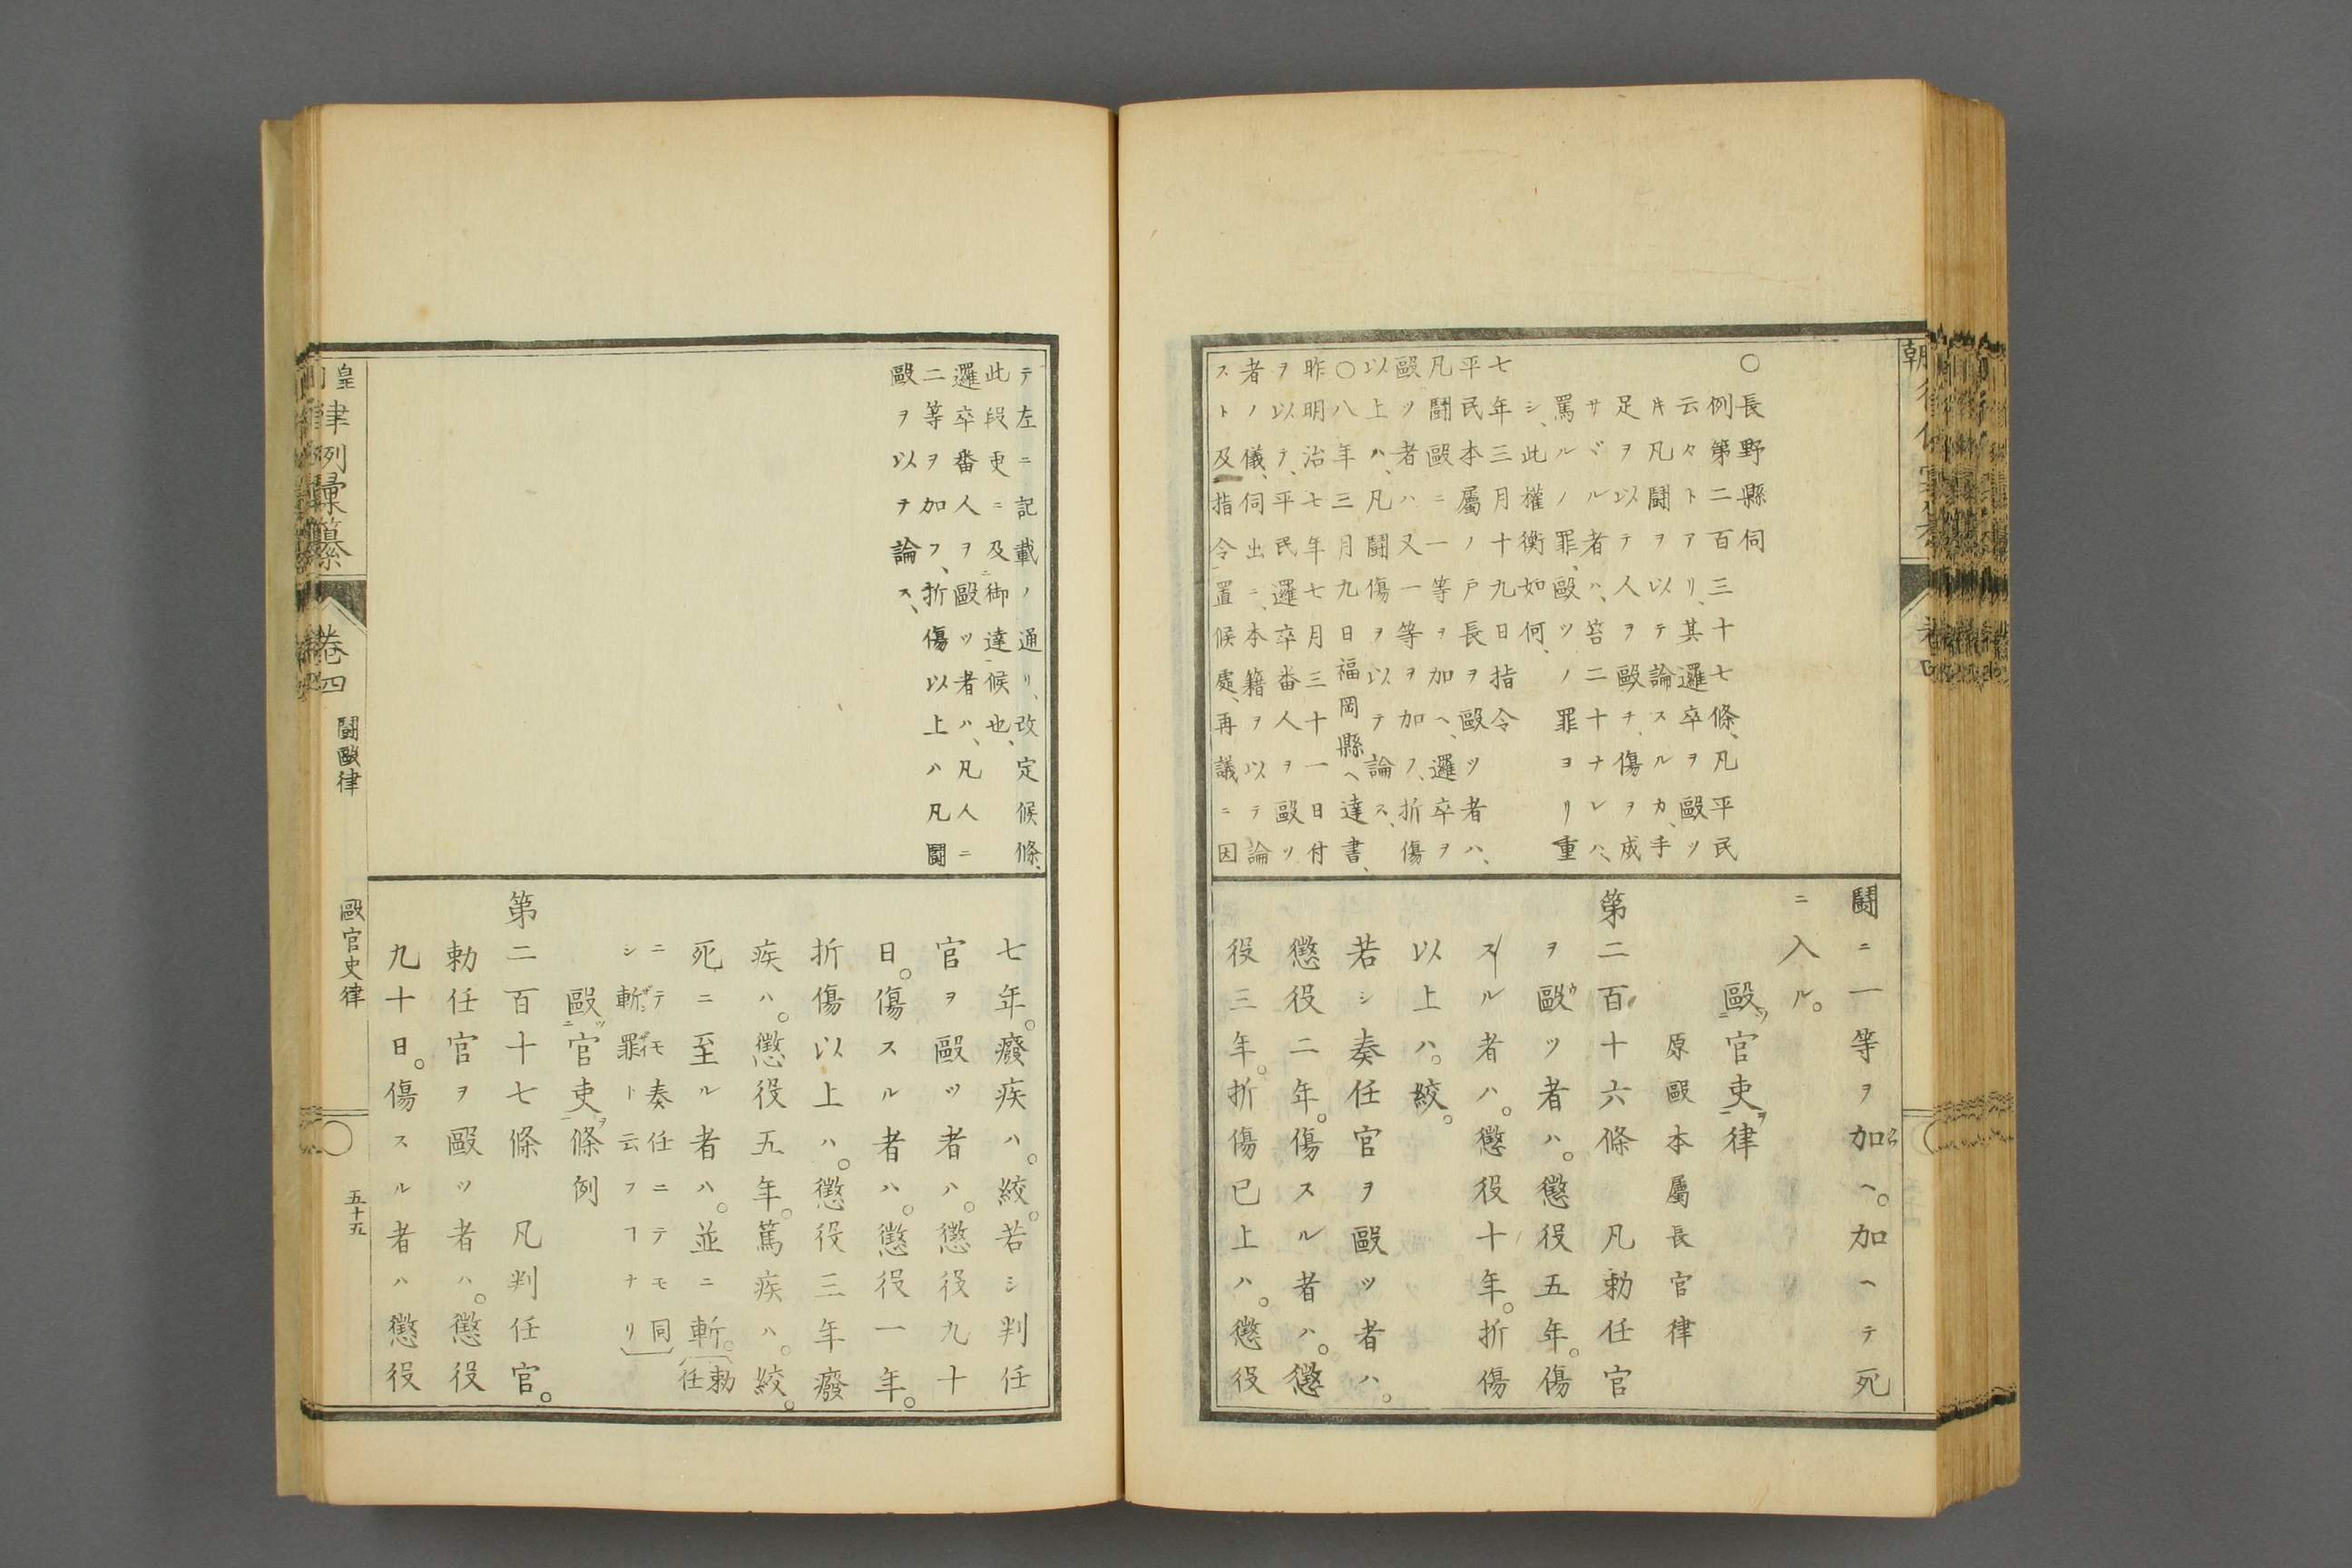 ○長野縣伺
例第二百三十七條、凡平民
云々トアリ、其邏卒ヲ毆ツ
𪜈凡闘ヲ以テ論スルカ、手
足ヲ以テ人ヲ毆チ、傷ヲ成
サヾル者ハ、笞二十ナレハ、
罵ルノ罪、毆ツノ罪ヨリ重
シ、此權衡如何、
七年三月十九日指令
平民本屬ノ戸長ヲ毆ツ者ハ、
凡闘毆ニ一等ヲ加ヘ、邏卒ヲ
毆ツ者ハ又一等ヲ加フ、折傷
以上ハ、凡闘傷ヲ以テ論ス、
○八年三月九日福岡縣ヘ達書、
昨明治七年七月三十一日付
ヲ以テ、平民邏卒番人ヲ毆ツ
者ノ儀、伺出ニ、本籍ヲ以テ論
スト及指令置候處、再議ニ因
闘ニ一等ヲ加ヘ。加ヘテ死
ニ入ル。
毆官吏律
原毆本屬長官律
第二百十六條 凡勅任官
ヲ毆ツ者ハ。懲役五年。傷
スル者ハ。懲役十年。折傷
以上ハ。絞。
若シ奏任官ヲ毆ツ者ハ。
懲役二年。傷スル者ハ。懲
役三年。折傷已上ハ。懲役
テ左ニ記載ノ通リ、改定候條、
此段更ニ及御達候也、
邏卒番人ヲ毆ツ者ハ、凡人ニ
二等ヲ加フ、折傷以上ハ凡闘
毆ヲ以テ論ス、
七年。癈疾ハ。絞。若シ判任
官ヲ毆ツ者ハ。懲役九十
日。傷スル者ハ。懲役一年。
折傷以上ハ。懲役三年癈
疾ハ。懲役五年。篤疾ハ。絞。
死ニ至ル者ハ。並ニ斬。勅任
ニテモ奏任ニテモ同
シ斬罪ト云フヿナリ
毆官吏條例
第二百十七條 凡判任官。
勅任官ヲ毆ツ者ハ。懲役
九十日。傷スル者ハ懲役
皇律例彙纂 卷四 闘毆律 毆官吏律 五十五